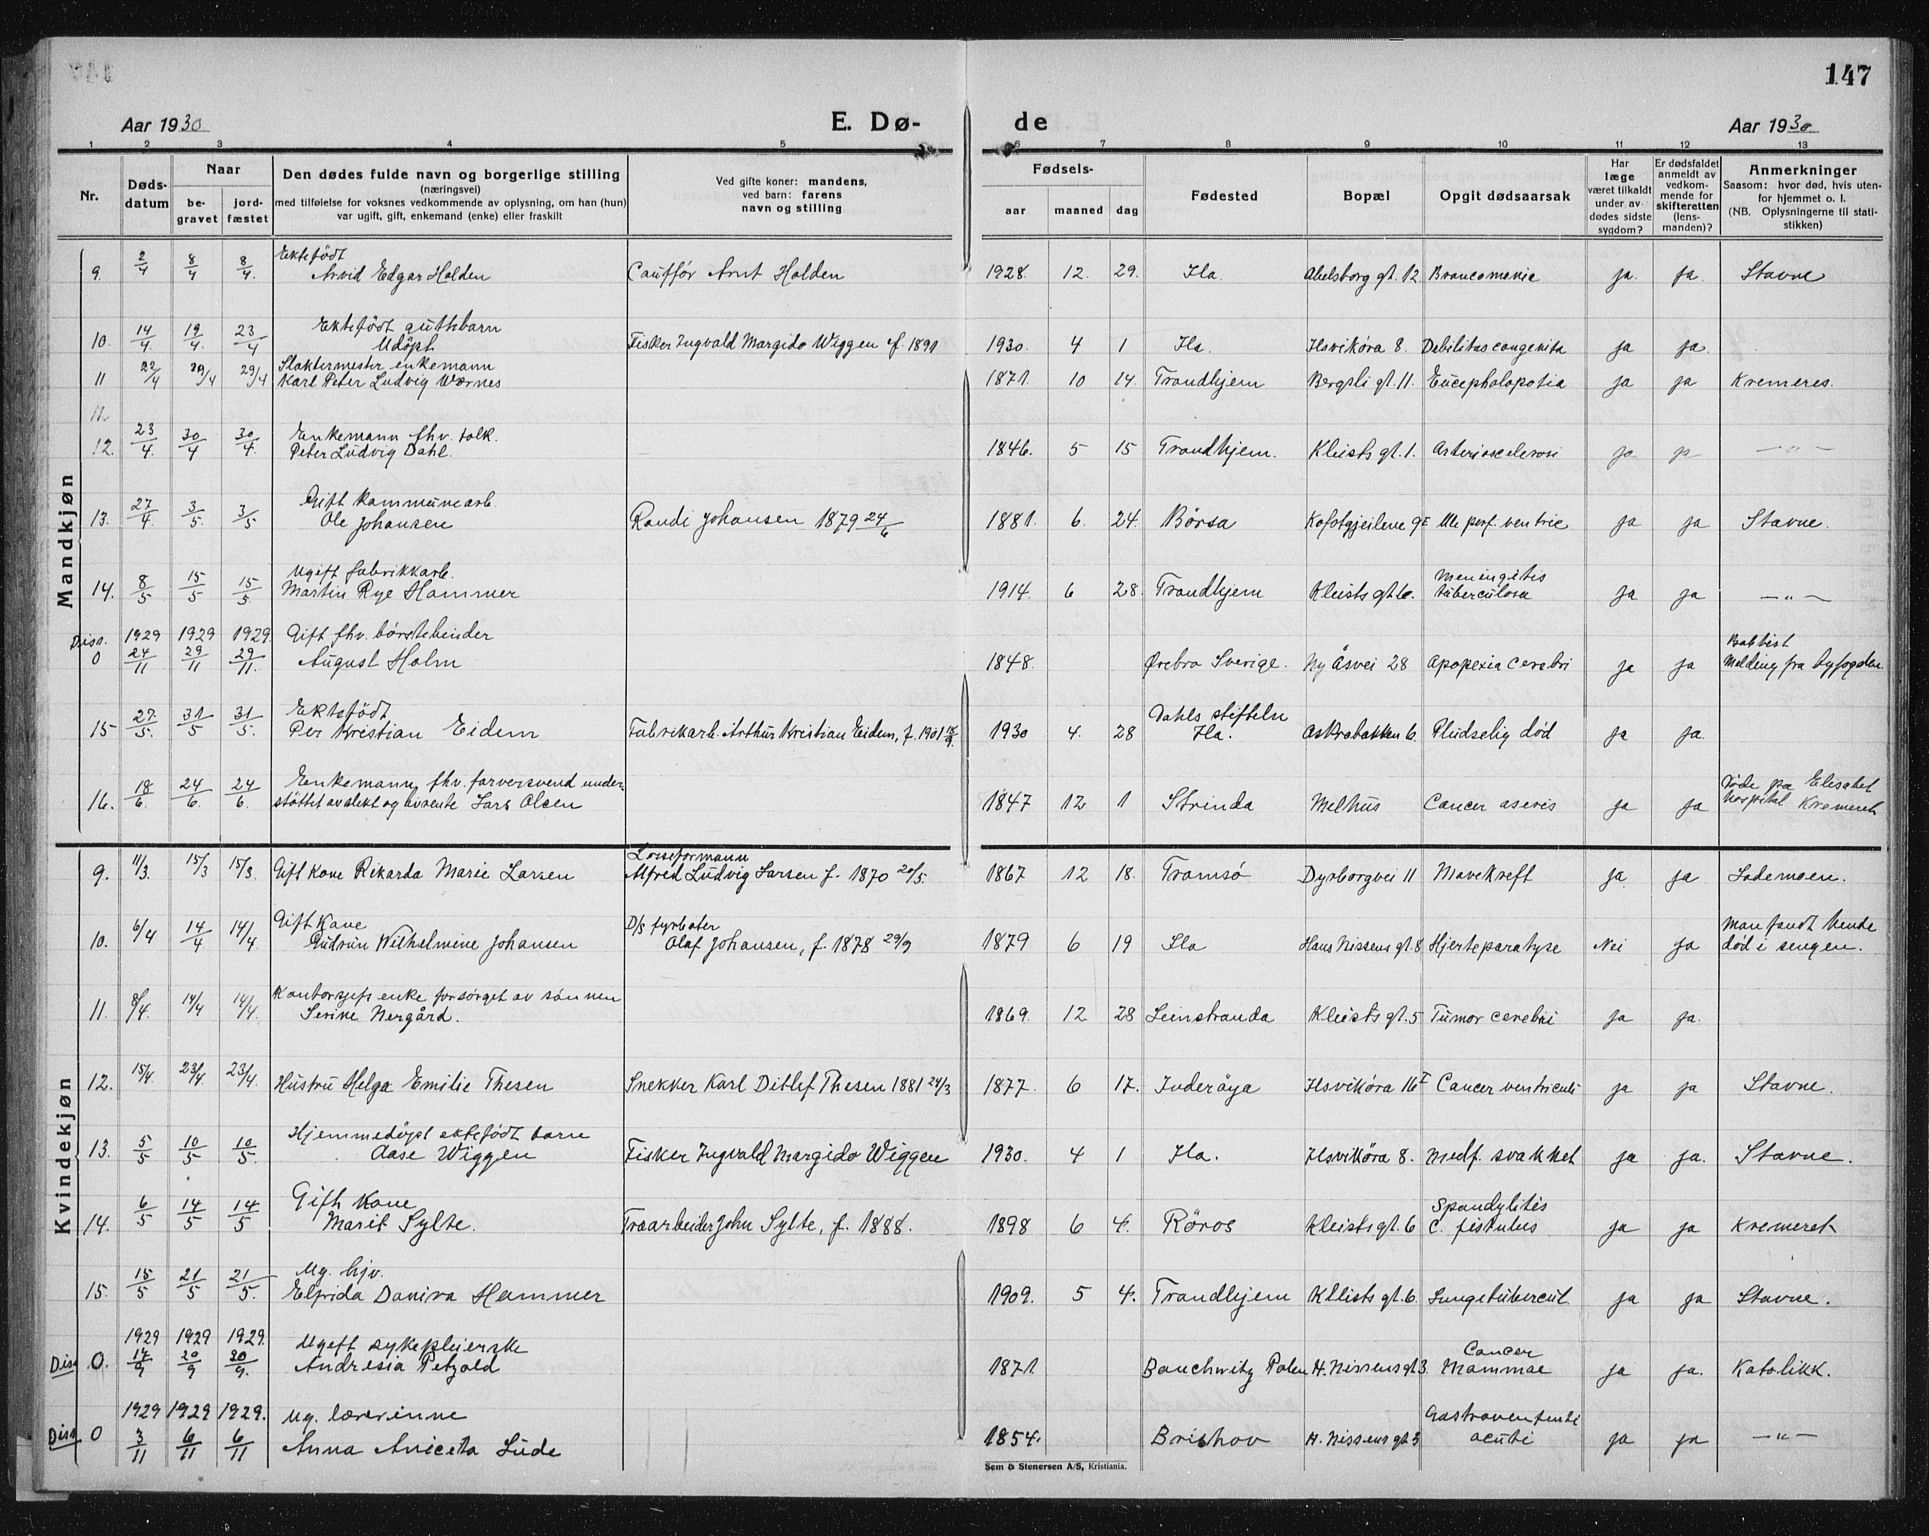 147
Aar 1930
E. Dø-
de
Aar 1930
1 2 3 4 5 6 7 8 9 10 11 12 13
Nr.
Døds-
datum
Naar
be-
gravet
jord-
fæstet
Den dødes fulde navn og borgerlige stilling
(næringsvei)
med tilføielse for voksnes vedkommende av oplysning, om han (hun)
var ugift, gift, enkemand (enke) eller fraskilt
Ved gifte koner: mandens,
ved barn: farens
navn og stilling
Fødsels-
aar maaned dag
Fødested
Bopæl
Opgit dødsaarsak
Har
læge
været tilkaldt
under av-
dødes sidste
sygdom?
Er dødsfaldet
anmeldt av
vedkom-
mende for
skifteretten
(lens-
manden)?
Anmerkninger
Saasom: hvor død, hvis uten-
for hjemmet o. l.
(NB. Oplysningerne til stati-
stikken)
Mandkjøn
Ektefödt
9. 2/4 8/4 8/4. Arvid Edgar Holden Cauffør Arnt Holden 1928. 12. 29. Ila. Abelsborg gt. 12. ja ja. Stavne
Ektefödt guttebarn
10. 14/4. 19/4. 23/4 Udöpt Fisker Ingvald Margido Wiggen f. 1891 1930. 4 1 Ila. Ilsviköra 8. Debilitas congenita ja ja.
Slaktermester enkemann
11 22/4 29/4 29/4 Karl Peter Ludvig Værnes 1871. 10 14. Trondhjem Bergsli gt. 11. ja ja Kremeres.
11.
Enkemann fhv. tolk.
12. 23/4. 30/4 30/4. Peter Ludvig Dahl. 1846. 5 15 Trondhjem. Kleists gt. 1. ja ja —„—
Gift kommunearb.
13. 27/4. 3/5. 3/5 Ole Johansen Randi Johansen 1879 24/6 1881. 6. 24. Börsa ja ja Stavne.
Ugift fabrikkarb. Meningitis
14. 8/5 15/5 15/5. Martin Rye Hammer 1914. 6 28. Trondhjem Kleists gt 6. tuberculosa ja ja —„—
Diss. 1929 1929 1929. Gift fhv. börstebinder Babtist
0 24/11 29/11 29/11. August Holm 1848. Ørebro Sverige. Ny Åsvei 28 Apopexia cerebri ja ja Melding fra byfogden.
Ektefödt Dahls stiftelse
15 27/5. 31/5 31/5. Per Kristian Eidem Fabrikarb. Arthur Kristian Eidem, f. 1901 1930 4. 28 Ila. 6. Pludselig död ja ja.
Enkemann, fhv. farversvend under- Döde på Elisabet
16. 18/6. 24/6. 24/6. støttet av slekt og livrente Lars Olsen 1847 12 1 Strinda Melhus Cancer ja ja hospital Kremeret
Kvindekjøn
Losseformann
9. 11/3. 15/3 15/3. Gift kone Rikarda Marie Larsen Alfred Ludvig Larsen f. 1870 20/5. 1867 12 18. Tromsö Dyrborgvei 11 Mavekreft ja ja Lademoen.
Gift kone D/s fyrbøter Man fandt hende
10. 6/4 14/4 14/4. Gudrun Wilhelmine Johansen Olaf Johansen, f. 1878 29/9 1879 6 19 Ila Hans Nissens gt. 8 Hjerteparalyse Nei ja död i sengen.
Kontorsjefs enke forsørget av sönnen
11. 8/4. 14/4 14/4. Serine Nergård. 1869. 12 28 Leinstranda Kleists gt. 5 Tumor cerebri ja ja.
12. 15/4. 23/4. 23/4. Hustru Helga Emilie Thesen Snekker Karl Ditlef Thesen 1881 24/3 1877. 6 17. Inderöya Ilsviköra 16 I Cancer ventriculi ja ja Stavne.
Hjemmedöpt ektefödt barn
13. 5/5 10/5 10/5. Aase Wiggen Fisker Ingvald Margido Wiggen 1930. 4 1 Ila. Ilsviköra 8. Medf. svakhet ja ja. Stavne.
Gift kone Spondylitis
14. 6/5 14/5 14/5 Marit Sylte. Træarbeider John Sylte, f. 1888. 1898 6 4. Röros Kleists gt. 6 C. fistulus ja ja Kremeret
Ug. hjv.
15. 15/5 21/5 21/5. Elfrida Danira Hammer 1909. 5 4. Trondhjem Kleists gt. 6. Lungetubercul. ja ja Stavne.
1929 1929 1929. Ugift sykepleierske Cancer
Diss. 0. 17/9 20/9 20/9. Andresia Petzold 1871. Bauchwitz Polen H. Nissens gt 3. Mammae ja ja. Katolikk.
1929 1929 1929. Ug. lærerinne
Diss. 0 3/11 6/11 6/11 Anna Aniceta Lüde 1854. H. Nissens gt 3 acuti ja ja —„—
Sem & Stenersen A/S, Kristiania.